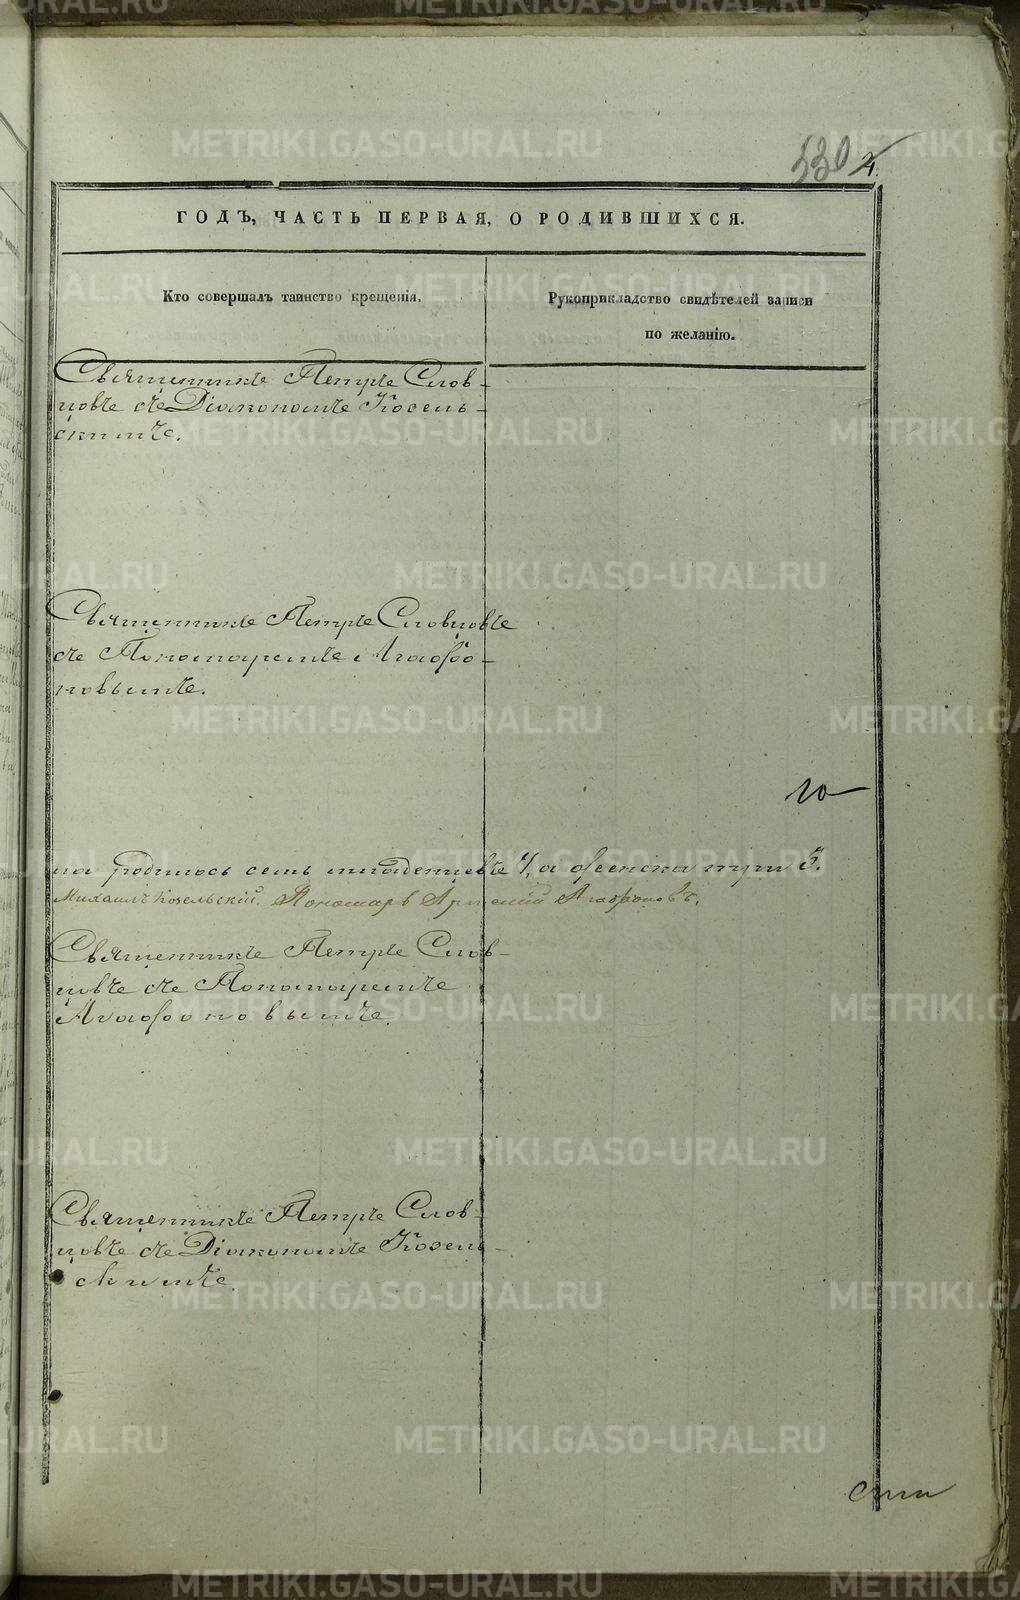 530 4.
ГОДЪ, ЧАСТЬ ПЕРВАЯ, О РОДИВШИХСЯ.
Кто совершалъ таинство крещенія.
Рукоприкладство свидѣтелей записи
по желанію.
Священникъ Петръ Слов-
цовъ съ Діакономъ Козель-
скимъ.
Священникъ Петръ Словцовъ
съ Пономаремъ Агафо-
новымъ.
10
на родилось семь младенцевъ 4, а женска три 3.
Михаилъ Козельскій. Пономарь Арсеній Агафоновъ.
Священникъ Петръ Слов-
цовъ съ Пономаремъ
Агафоновымъ.
Священникъ Петръ Слов-
цовъ съ Діакономъ Козель-
скимъ.
METRIKI.GASO-URAL.RU